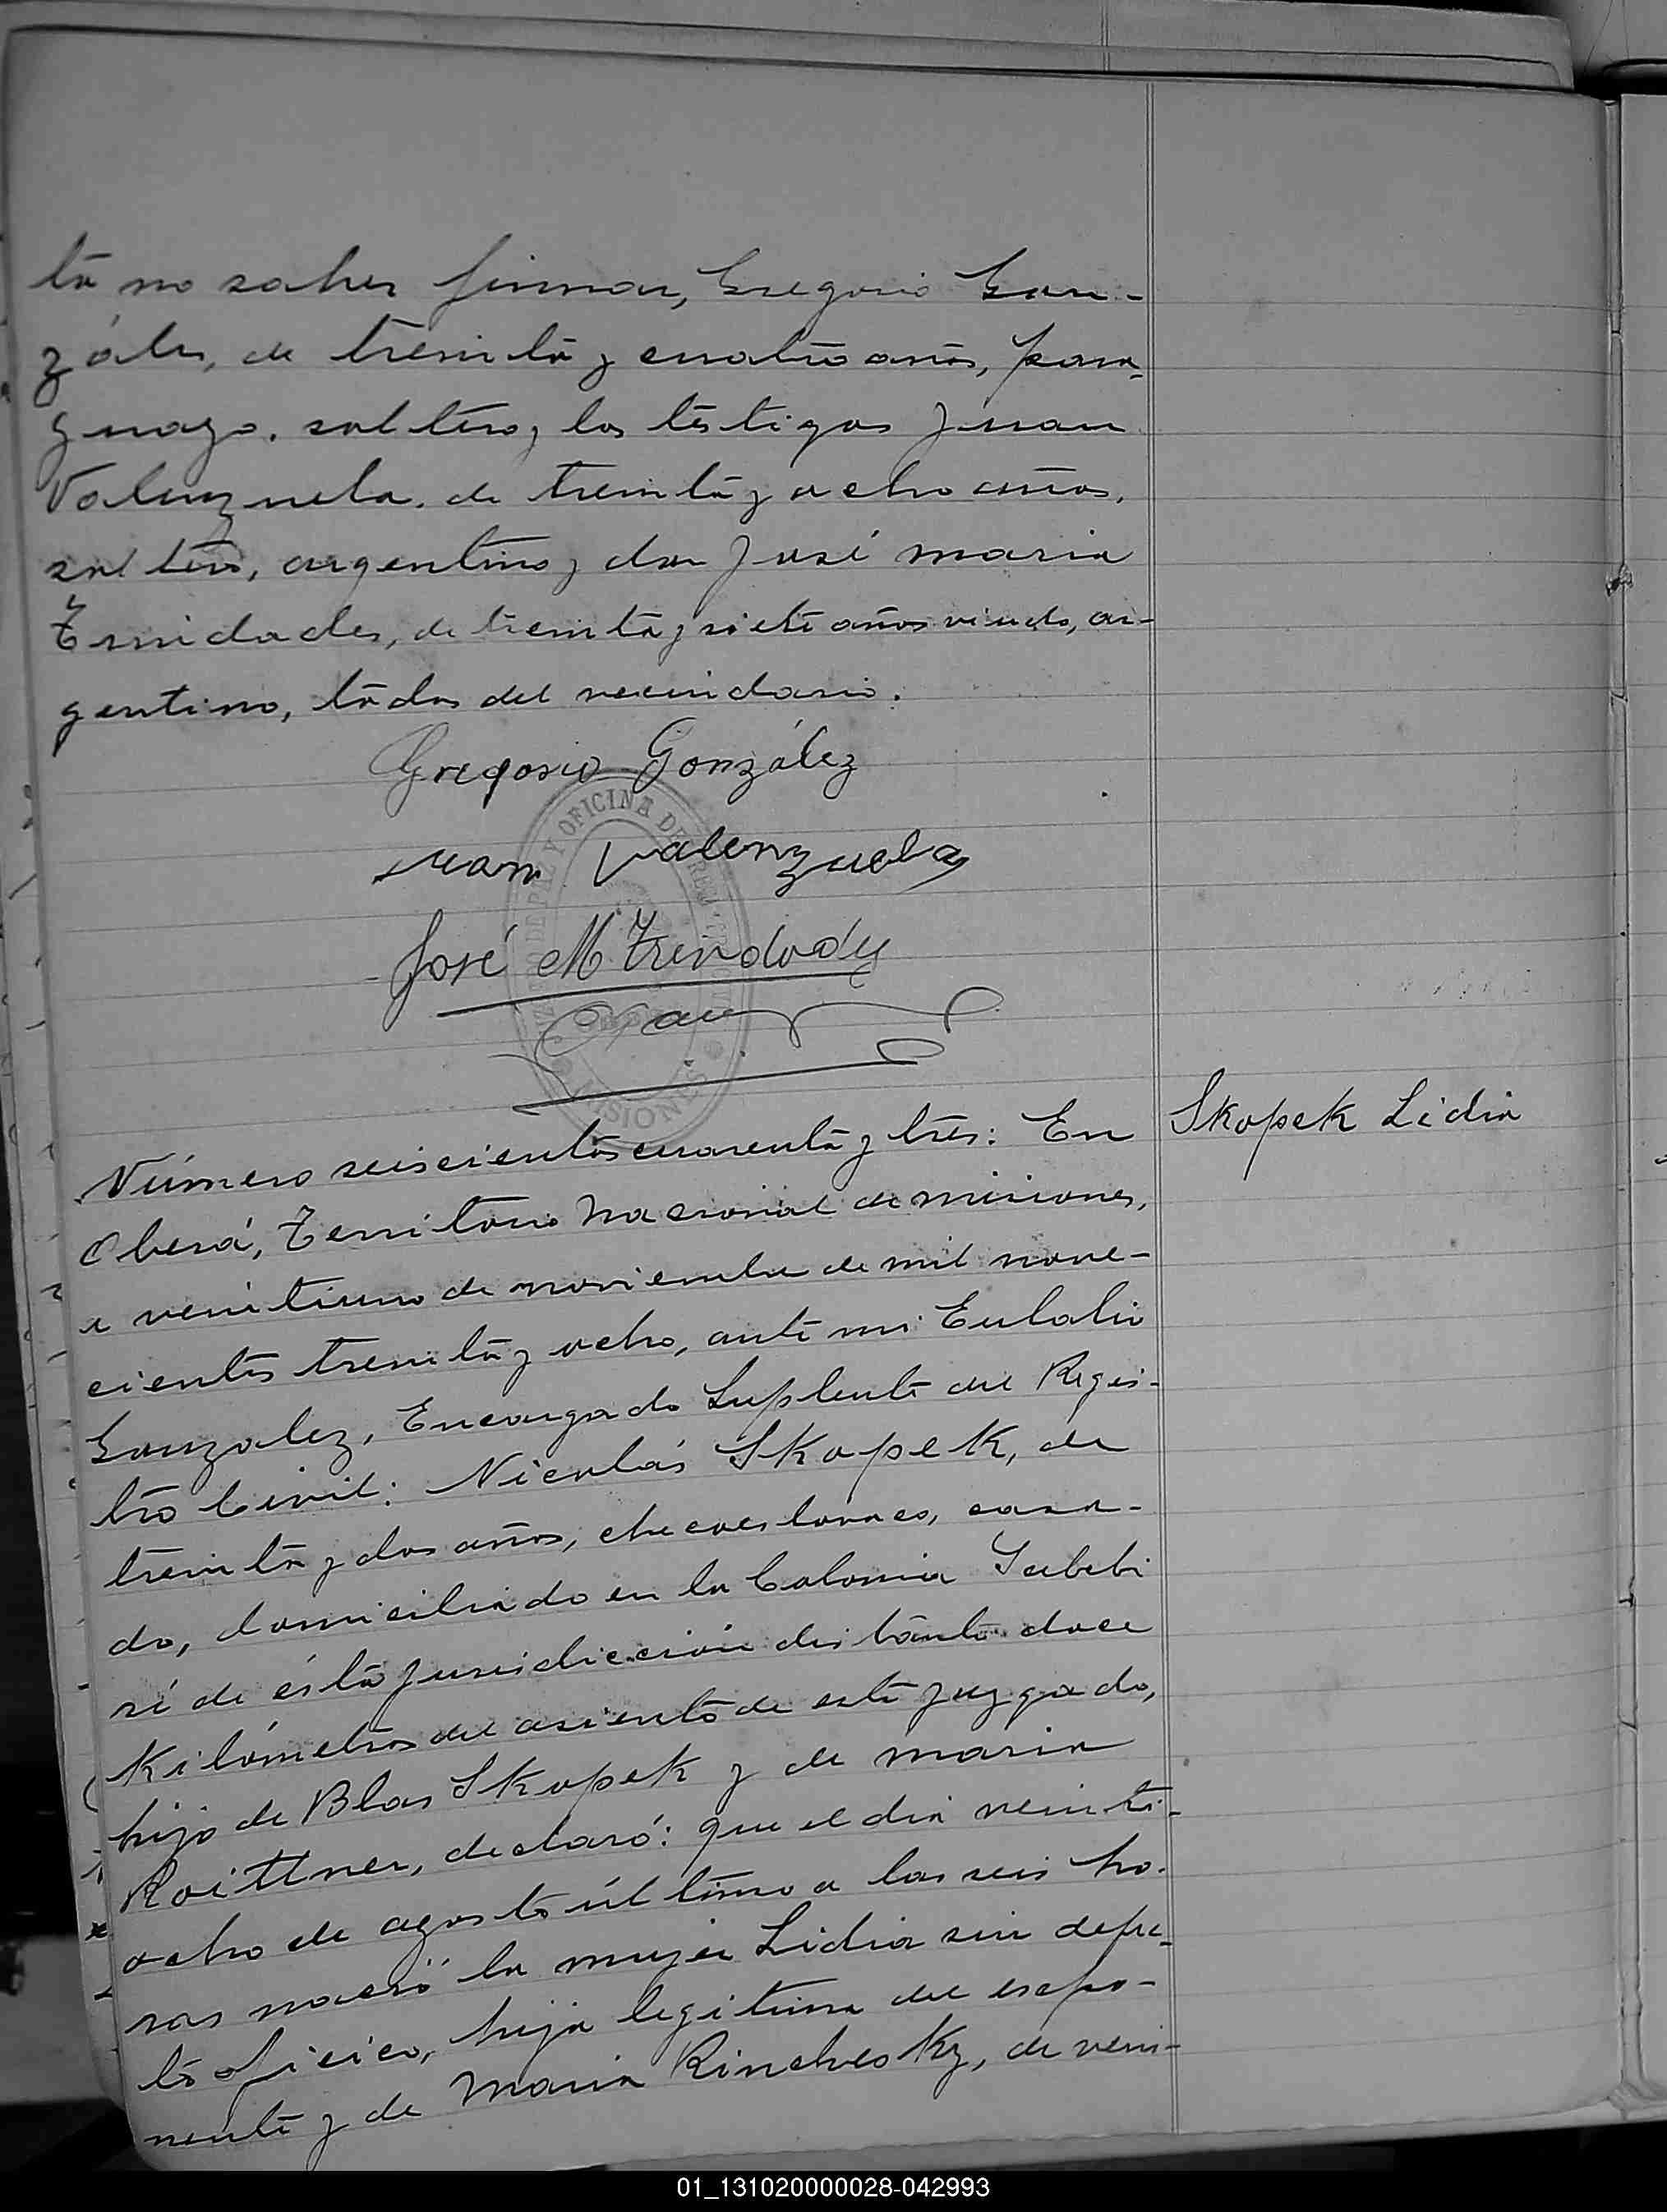 ta no saber firmar, Gregorio Gon-
zález, de treinta y cuatro años, para-
guayo, soltero y los testigos Juan
Valenzuela, de treinta y ocho años,
soltero, argentino y don José Maria
Trinidades, de treinta y siete años viudo, ar-
gentino, todos del vecindario.
Gregorio González
Juan Valenzuela
José M Trindade
JUZGADO DE PAZ Y OFICINA DE REG. CIVIL
MISIONES
Número seiscientos cuarenta y tres: En
Skopek Lidia
Oberá, Territorio Nacional de Misiones,
a veintiuno de noviembre de mil nove-
cientos treinta y ocho, ante mi Eulalio
Gonzalez, Encargado Suplente del Regis-
tro Civil: Nicolás Skopek, de
treinta y dos años, checoeslovaco, casa-
do, domiciliado en la Colonia Yabebi
rí de ésta jurisdiccion distante doce
Kilómetros del asiento de este juzgado,
hijo de Blas Skopek y de Maria
Roittner, declaró: que el dia veinti-
ocho de agosto último a las seis ho-
ras nació la mujer Lidia sin defec-
to físico, hija legitima del expo-
nente y de Maria Rinchesky, de vein-
01_131020000028-042993